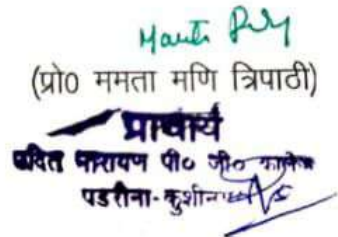 (प्रो० ममता मणि त्रिपाठी)
प्राचार्य
उदित नारायण पी० जी० कालेज
पडरौना-कुशीनगर